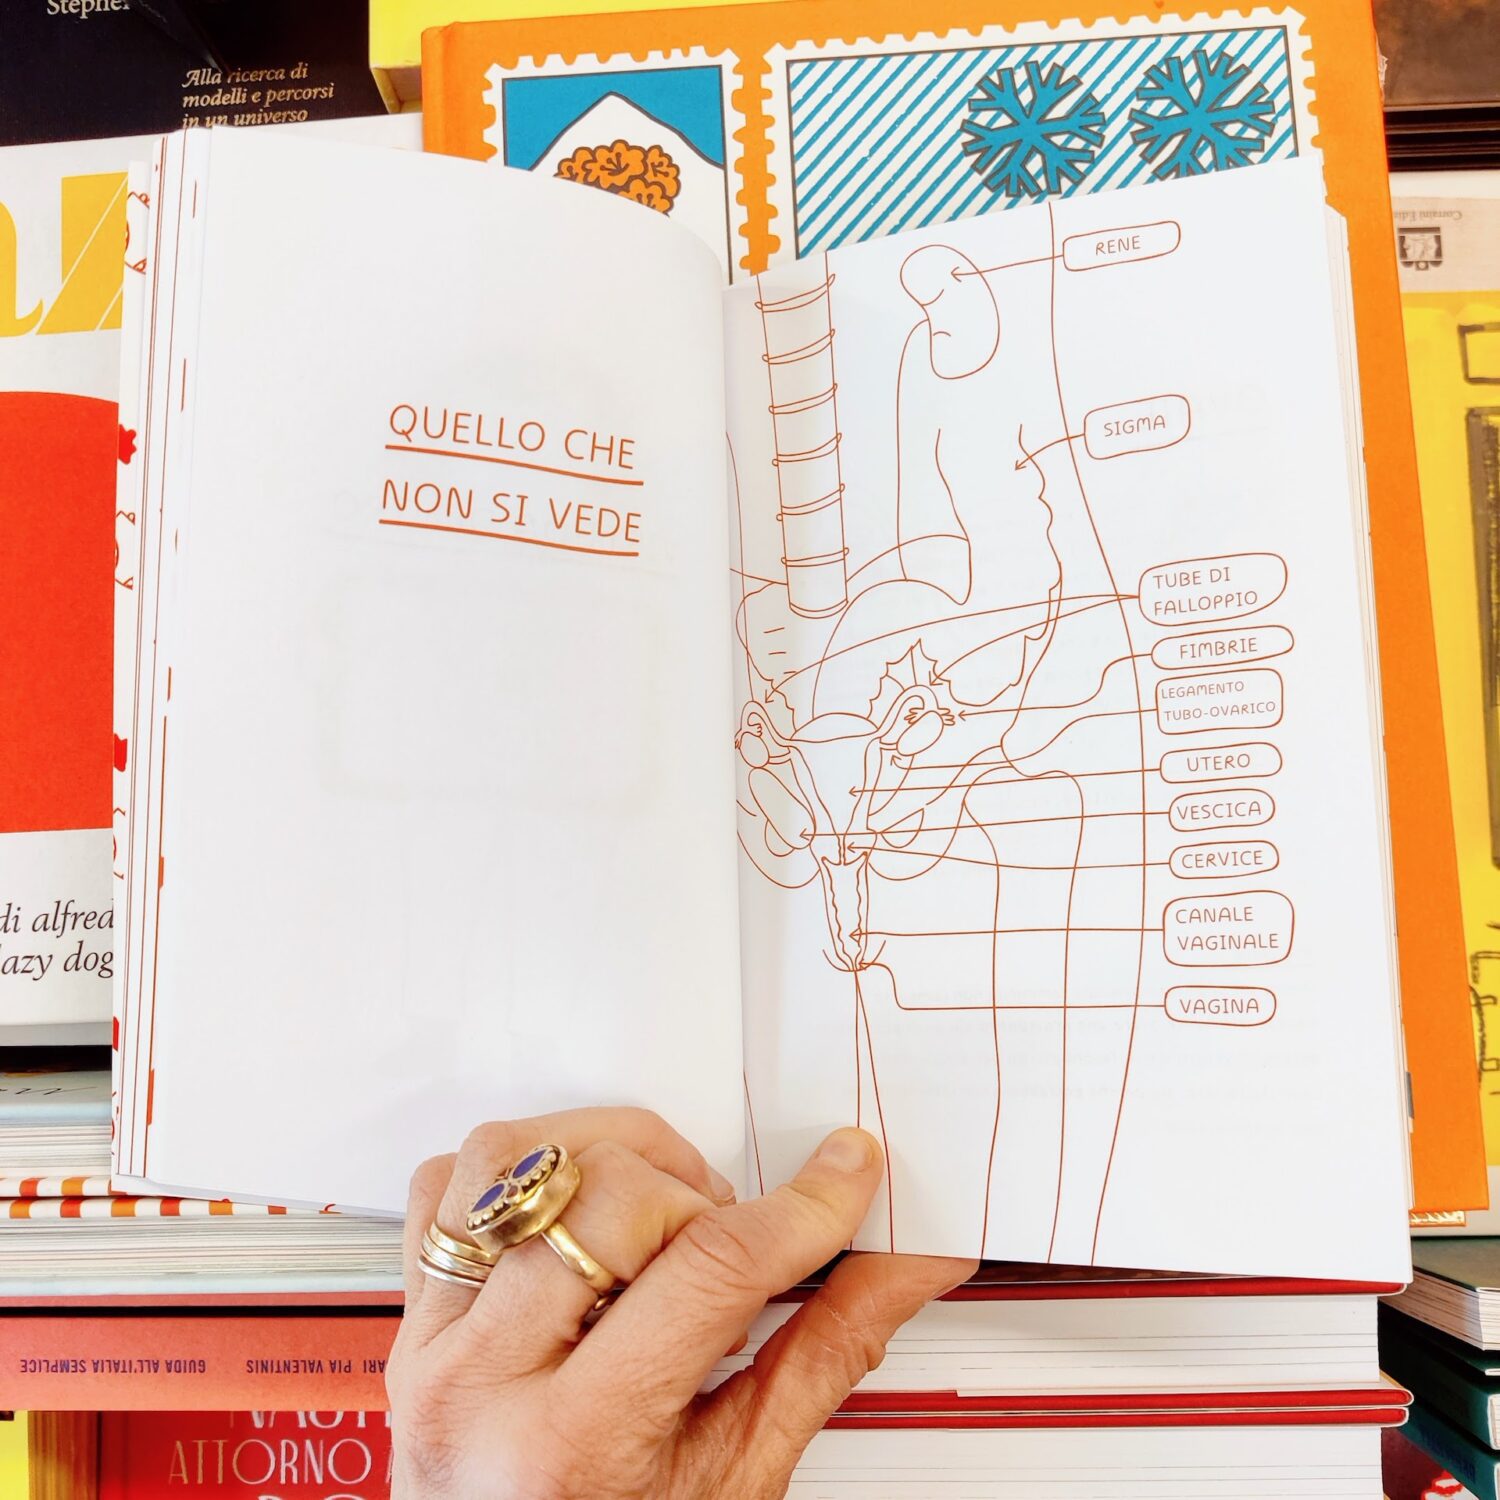 Stephen
Alla ricerca di
modelli e percorsi
in un universo
Corraini
QUELLO CHE
NON SI VEDE
RENE
SIGMA
TUBE DI
FALLOPPIO
FIMBRIE
LEGAMENTO
TUBO-OVARICO
UTERO
VESCICA
CERVICE
CANALE
VAGINALE
VAGINA
di alfred
lazy dog
PIA VALENTINIS GUIDA ALL'ITALIA SEMPLICE
ATTORNO